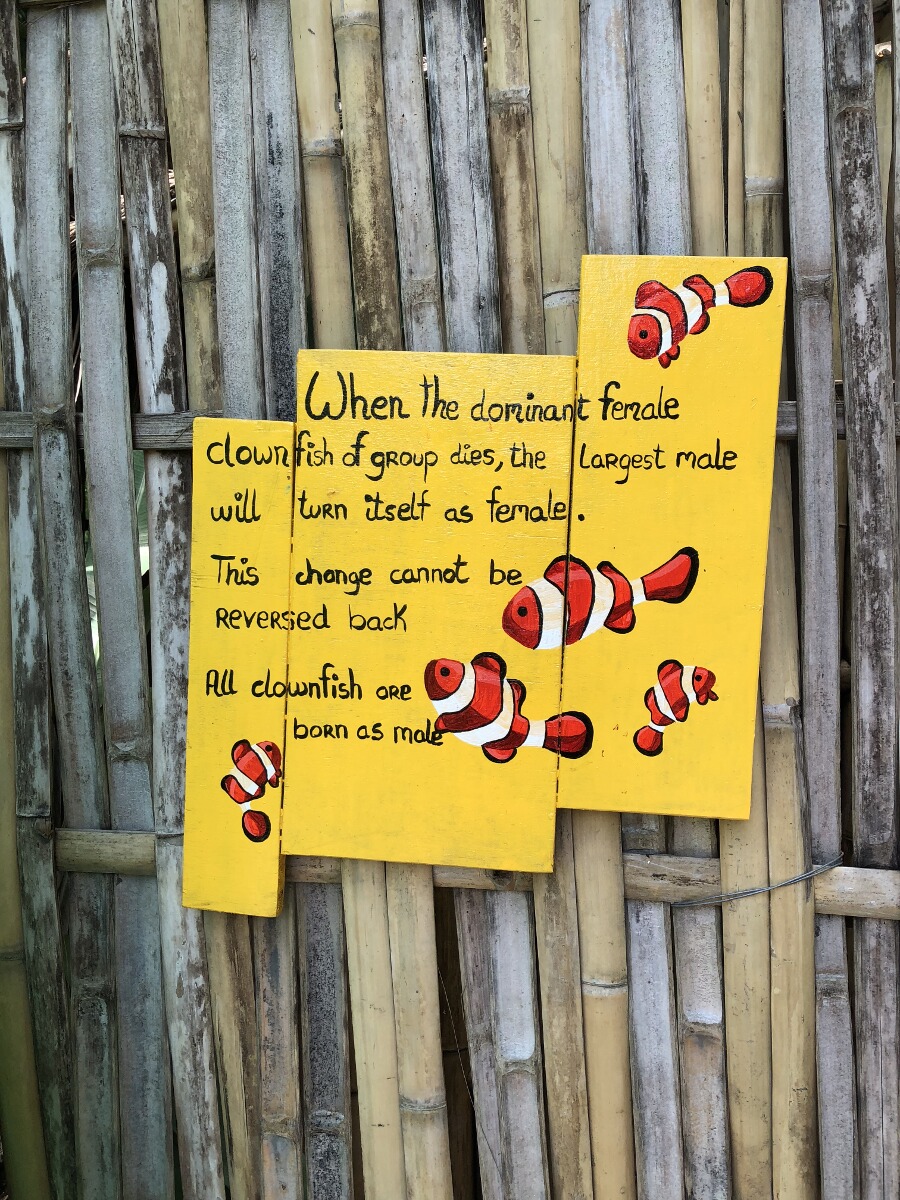 When the dominant female
clownfish of group dies, the largest male
will turn itself as female.
This change cannot be
reversed back
All clownfish are
born as male